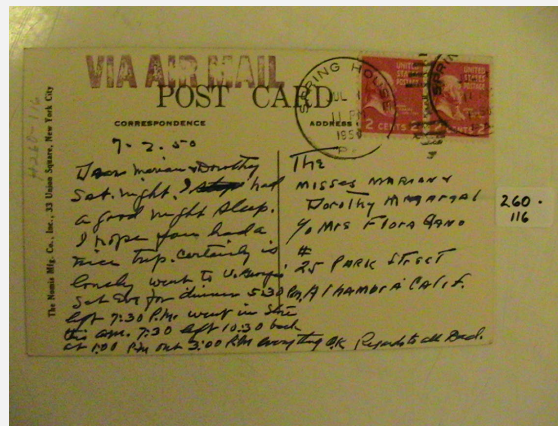 VIA AIR MAIL
POST CARD
CORRESPONDENCE
ADDRESS
SPRING HOUSE
JUL
11 PM
1950
PA.
UNITED
STATES
POSTAGE
2 CENTS 2
UNITED
STATES
POSTAGE
SPRING
The Nomis Mfg. Co., Inc., 33 Union Square, New York City
H260-116
7-2.50
Dear Marion & Dorothy
Sat. night. I had
a good night sleep.
I hope you had a
nice trip. Certainly is
lonely went to
Sat for dinner 5:30 P.M.
left 7:30 P.M. went in Store
this am. 7:30 left 10:30 back
at 1:00 P.M. out 3:00 P.M. everything O.K. Regards to all Dad.
The
Misses Marion &
Dorothy
c/o Mrs Flora
#
25 Park Street
Alhambra Calif.
260-
116